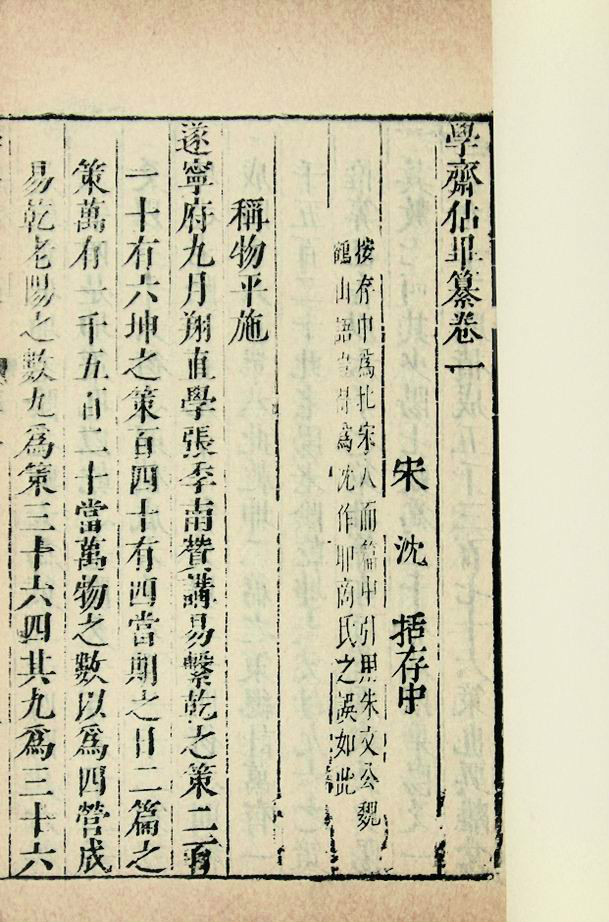 學齋佔畢纂卷一
宋 沈 括存中
按存中爲北宋人而篇中引用朱文公魏
鶴山語豈得爲沈作耶商氏之誤如此
稱物平施
遂寧府九月翔直學張季南贊講易繫乾之策二百
一十有六坤之策百四十有四當期之日二篇之
策萬有一千五百二十當萬物之數以爲四營成
易乾老陽之數九爲策三十六四其九爲三十六